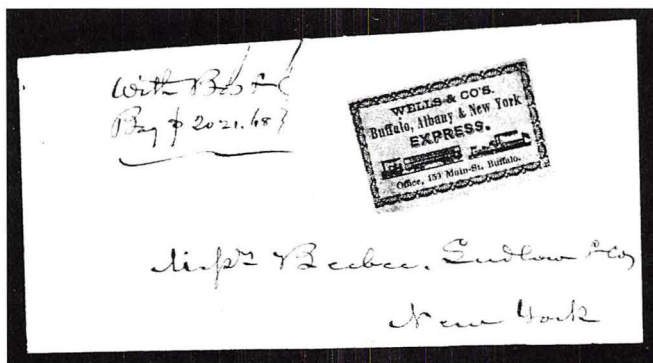 With
Bag $ 2021.68
WELLS & CO'S.
Buffalo, Albany & New York
EXPRESS.
Office, 153 Main-St. Buffalo.
Messrs Beebee, Ludlow & Co
New York